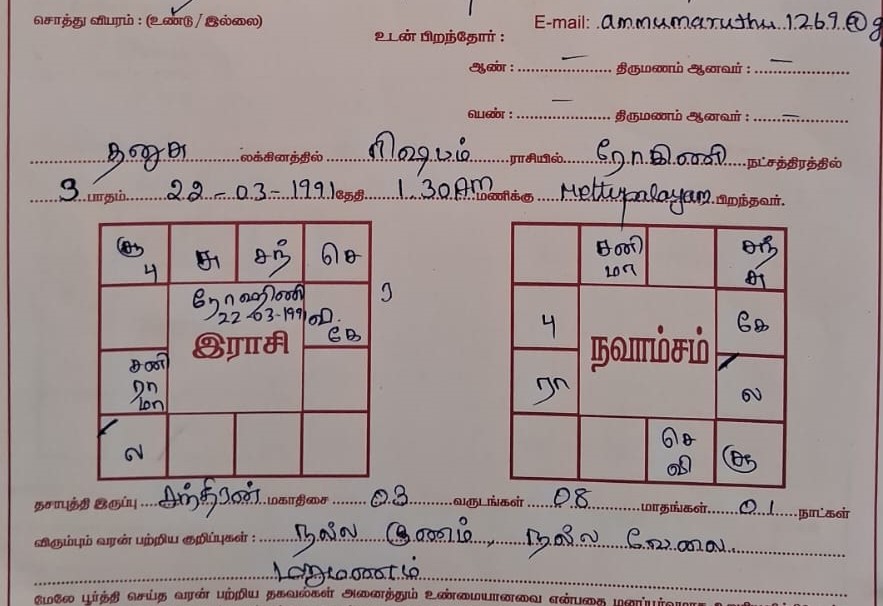 சொத்து விபரம் : (உண்டு / இல்லை)
E-mail: ammumaruthu.1269@g
உடன் பிறந்தோர் :
ஆண் : — திருமணம் ஆனவர் : —
பெண் : — திருமணம் ஆனவர் : —
தனுசு லக்கினத்தில் ரிஷபம் ராசியில் ரோகிணி நட்சத்திரத்தில்
3 பாதம் 22-03-1991 தேதி 1.30AM மணிக்கு Mettupalayam பிறந்தவர்.
சூ பு சு சந் செ
சனி மா சந் சு
ரோஹிணி
22-03-1991
இராசி
வி கே
பு
நவாம்சம்
கே
சனி ரா மா
ரா
ல
ல
செ வி
சூ
தசாபுத்தி இருப்பு சந்திரன் மகாதிசை 03 வருடங்கள் 08 மாதங்கள் 01 நாட்கள்
விரும்பும் வரன் பற்றிய குறிப்புகள் : நல்ல குணம், நல்ல வேலை
மறுமணம்
மேலே பூர்த்தி செய்த வரன் பற்றிய தகவல்கள் அனைத்தும் உண்மையானவை என்பதை மனப்பூர்வமாக